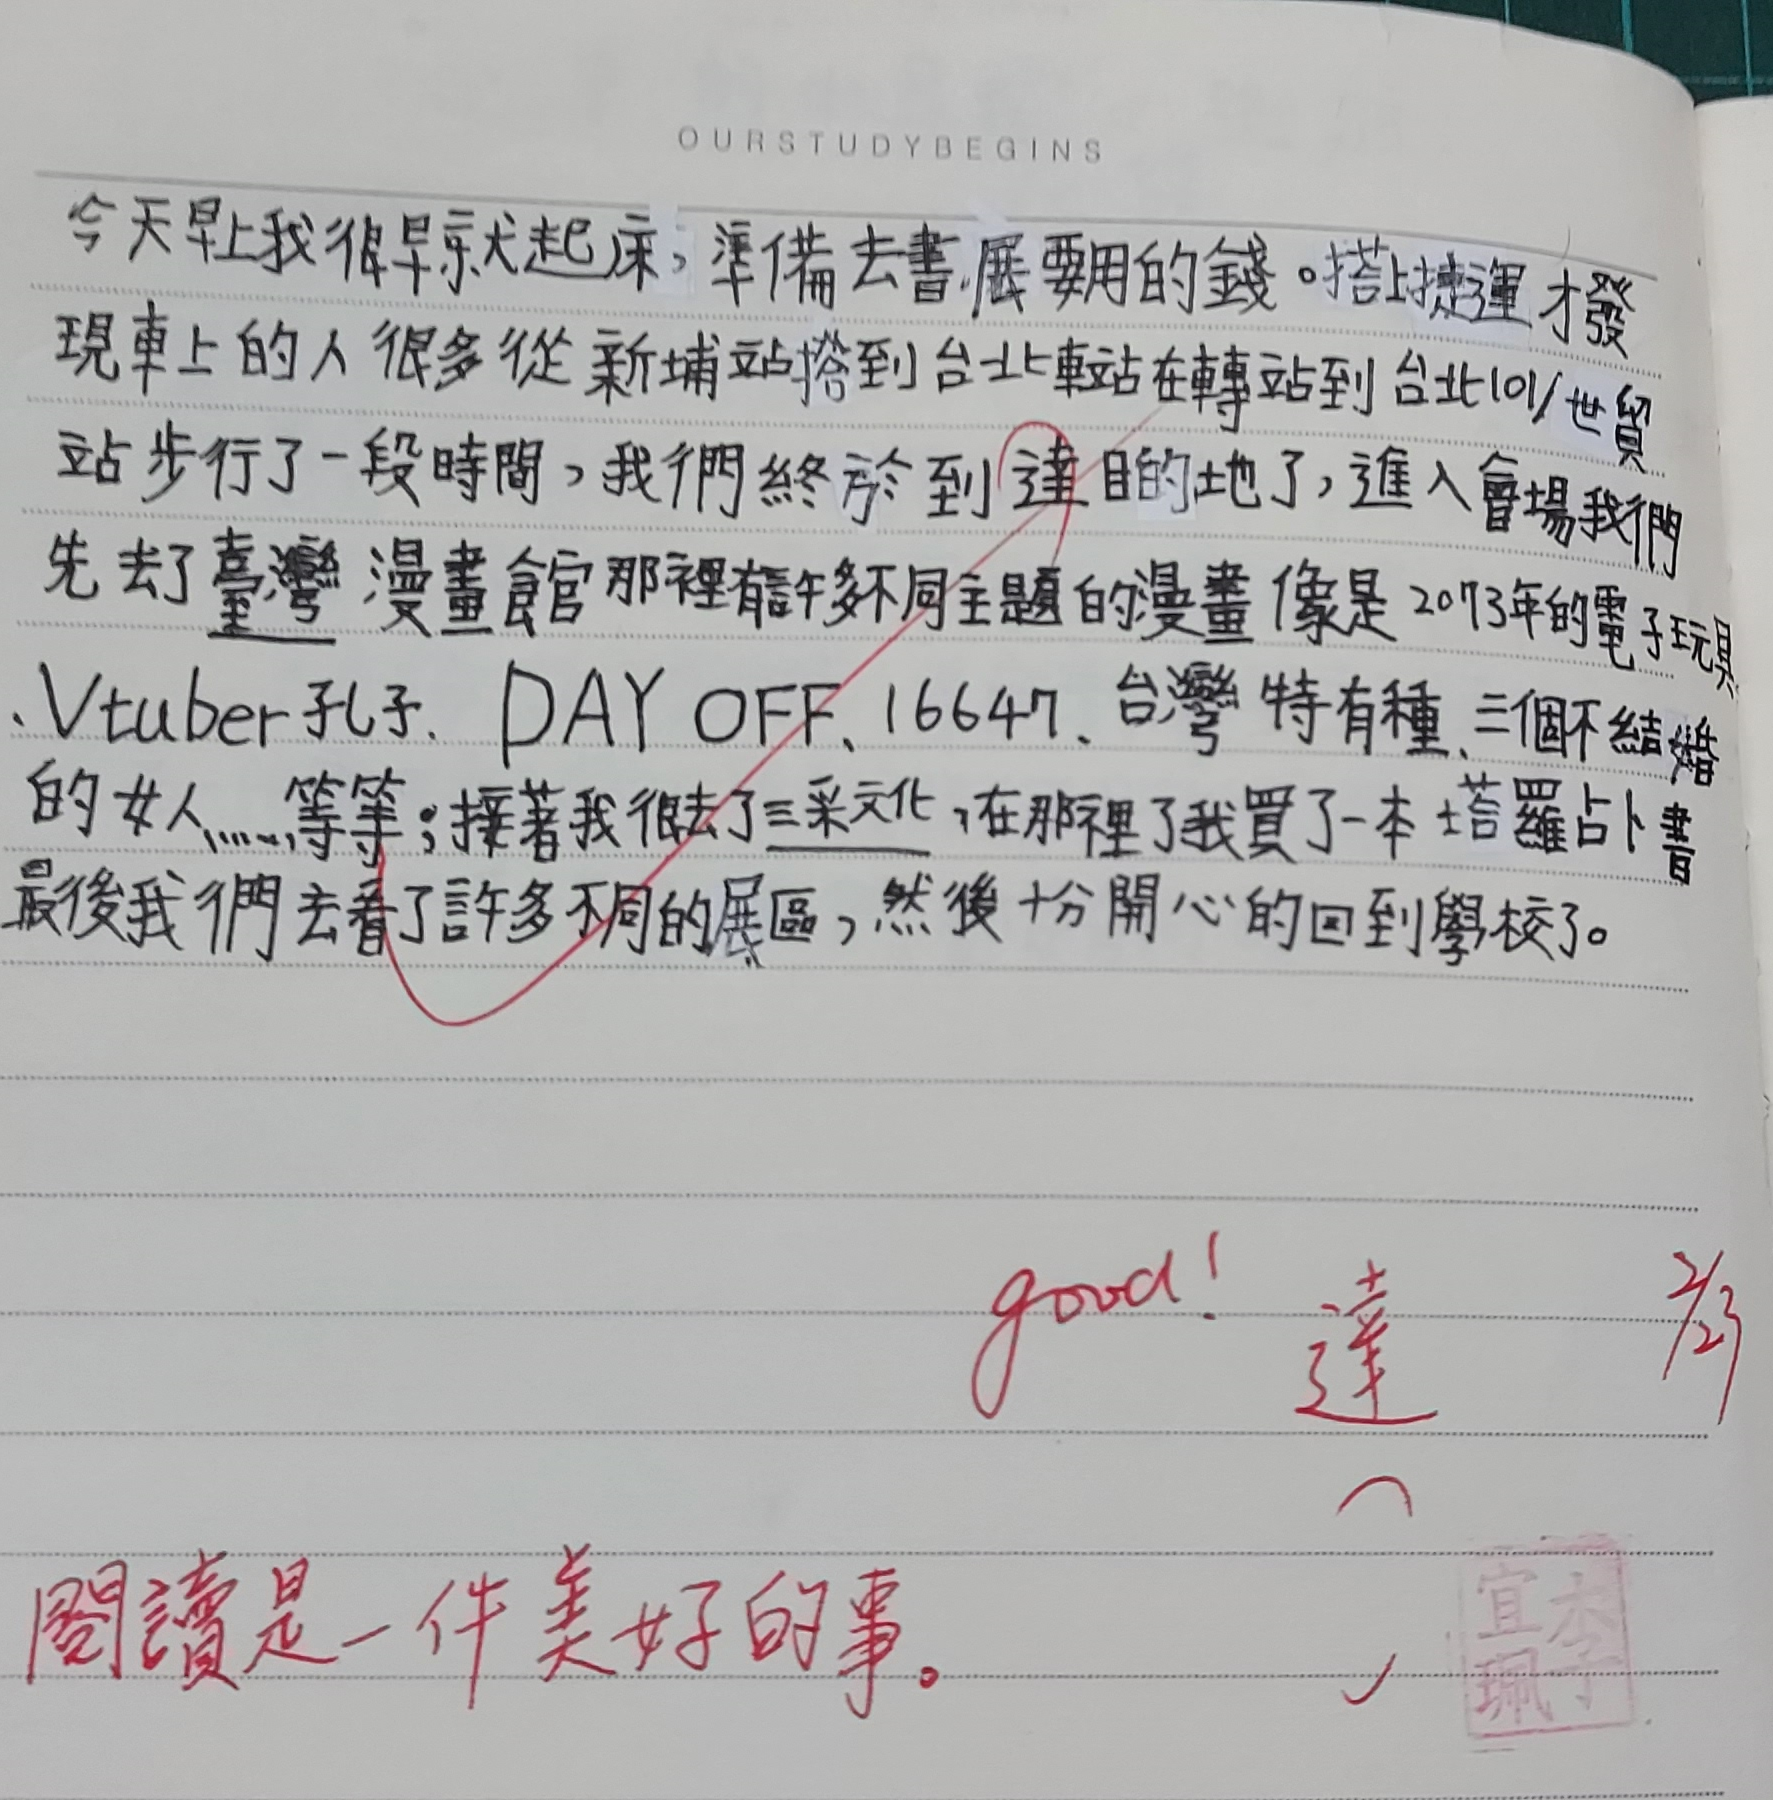 OURSTUDYBEGINS
今天早上我很早就起床，準備去書展要用的錢。搭上捷運才發
現車上的人很多從新埔站搭到台北車站在轉站到台北101/世貿
站步行了一段時間，我們終於到達目的地了，進入會場我們
先去了臺灣漫畫館那裡有許多不同主題的漫畫像是2073年的電子玩具
、Vtuber孔子、DAY OFF、16647、台灣特有種、三個不結婚
的女人……等等；接著我很去了三采文化，在那裡了我買了一本塔羅占卜書
最後我們去看了許多不同的展區，然後十分開心的回到學校了。
good!
達
2/23
閱讀是一件美好的事。
李宜珮